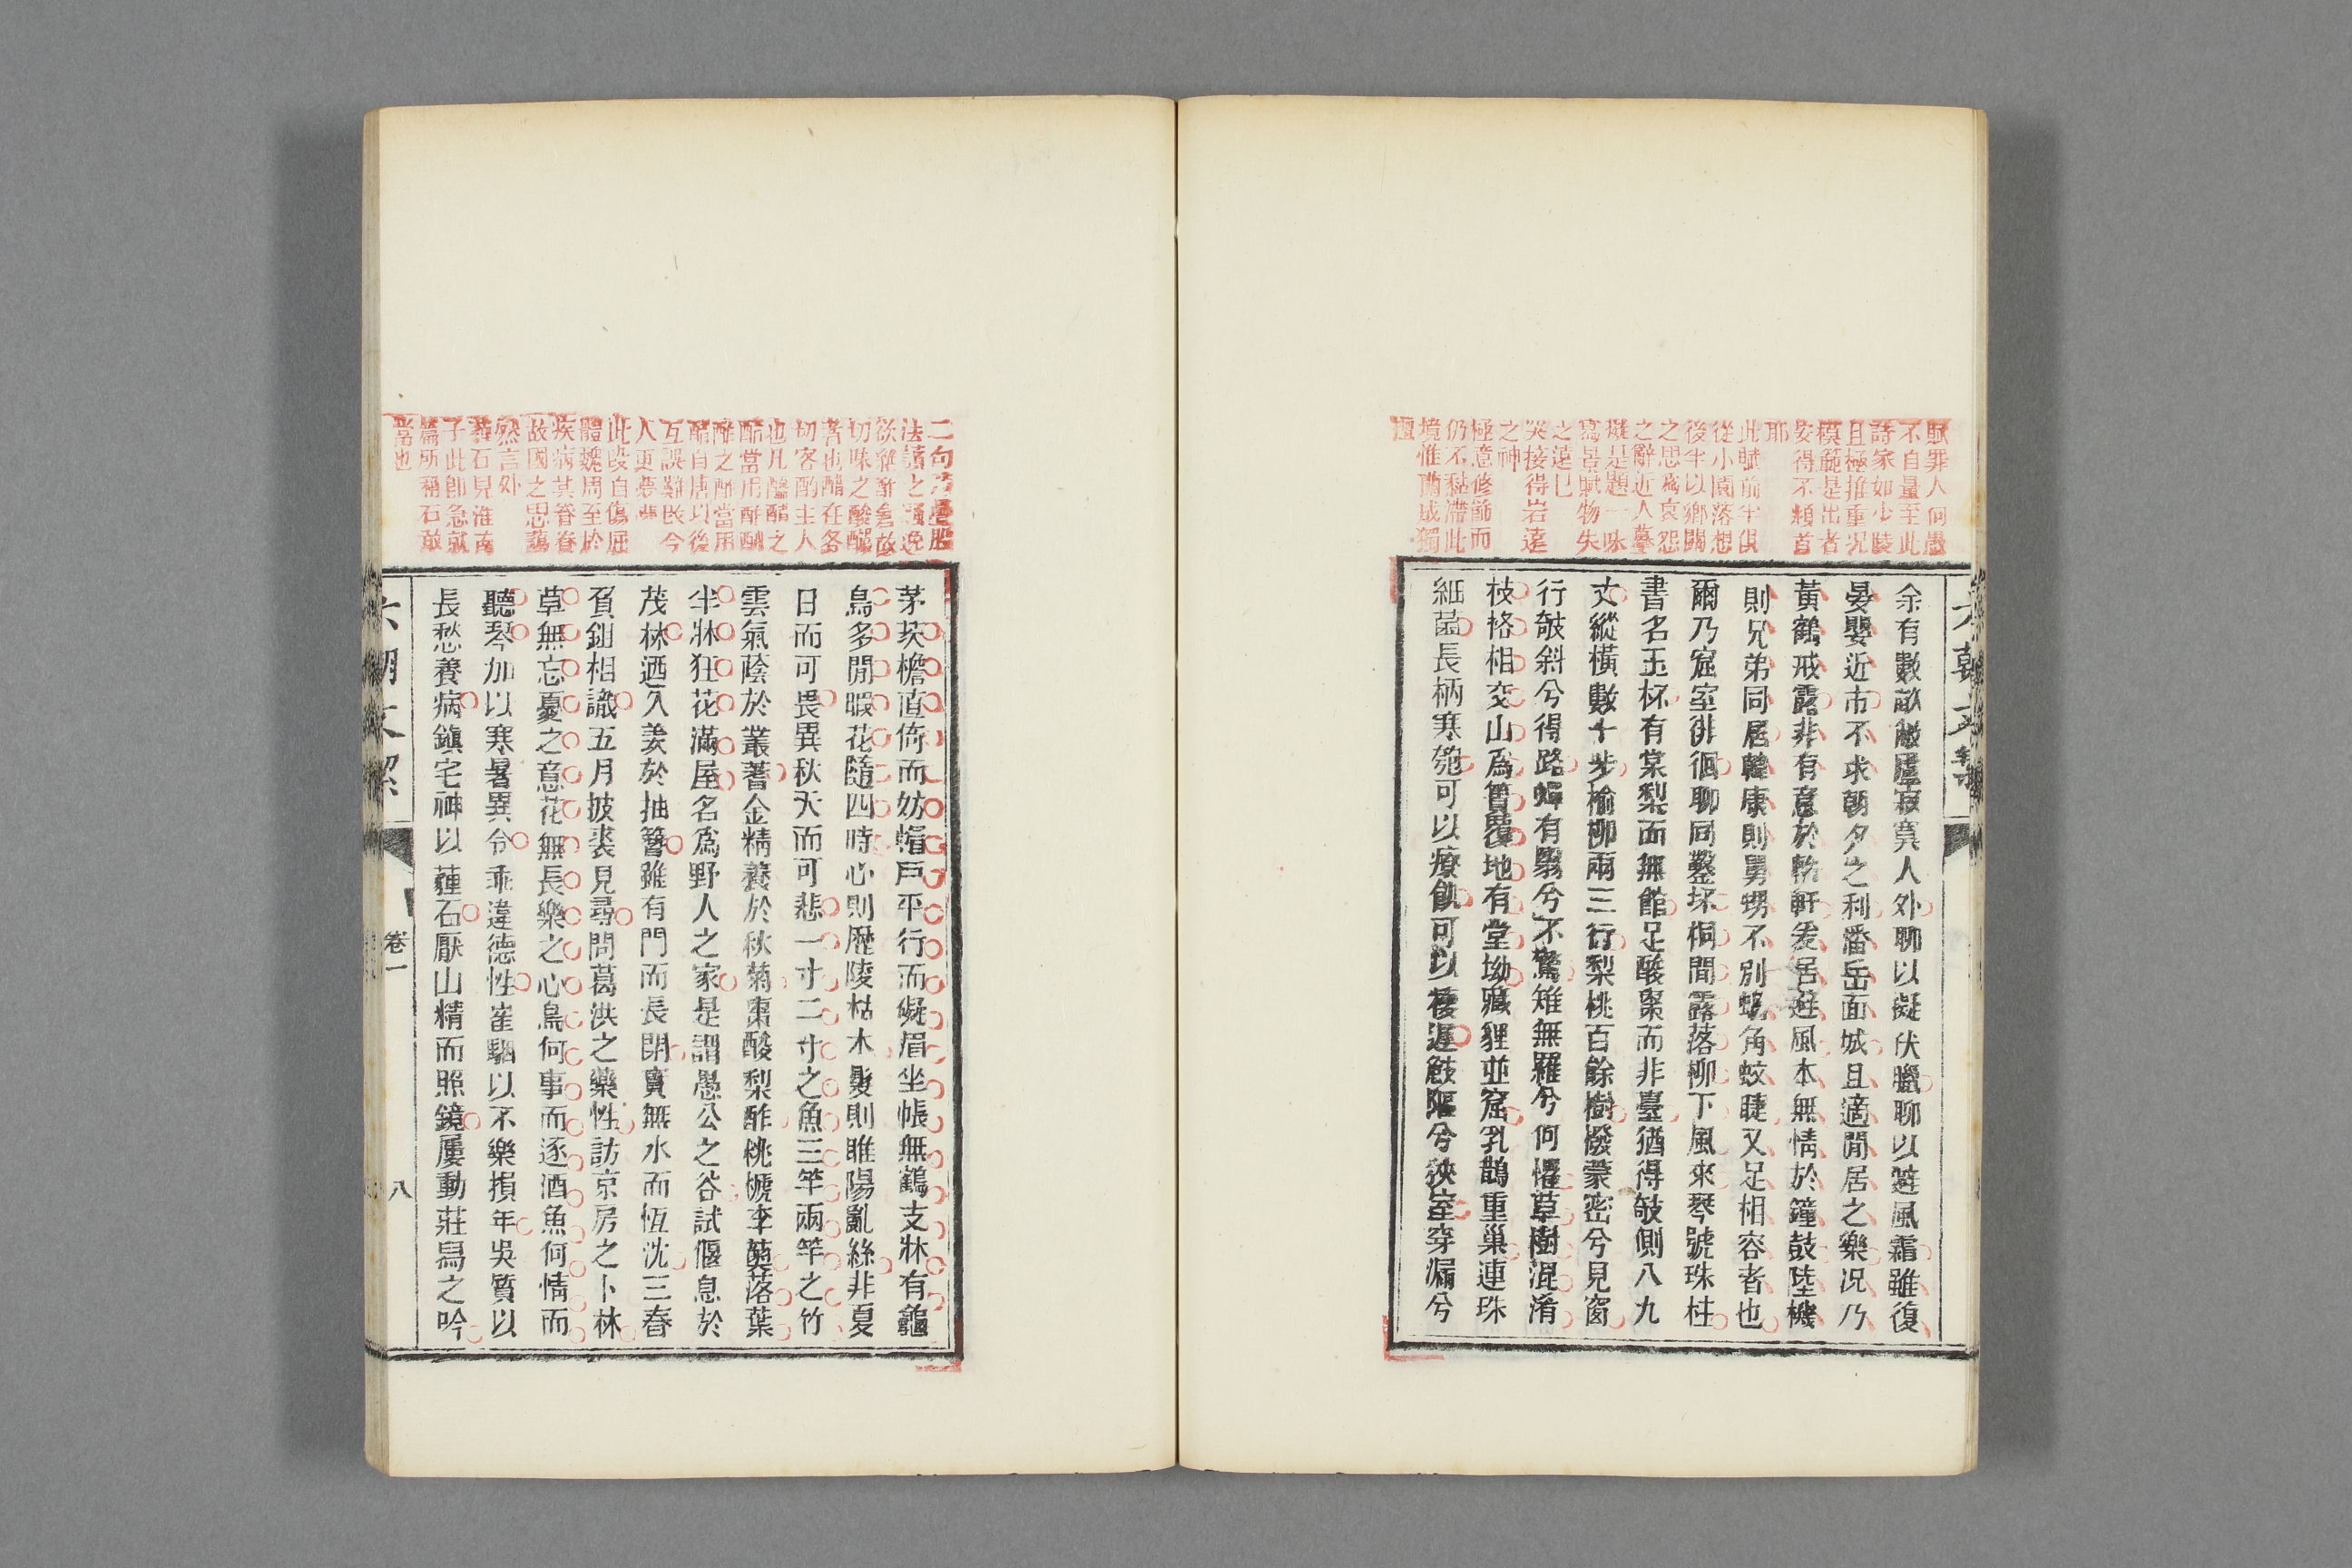 賦罪人何愚
不自量至此
詩家如少陵
且極推重況
模範是出者
安得不頫首
耶
此賦前半俱
從小園落想
後半以鄉關
之思爲哀怨
之辭近人摹
擬是題一味
寫景賦物失
之遠巳
哭接得岩遠
之神
極意修篩而
仍不黏滯此
境惟蘭成獨
擅
余有數畝敝廬寂寞人外聊以擬伏臘聊以避風霜雖復
晏嬰近市不求朝夕之利潘岳面城且適閒居之樂況乃
黃鶴戒露非有意於輪軒爰居避風本無情於鐘鼓陸機
則兄弟同居韓康則舅甥不別蝸角蚊睫又足相容者也
爾乃窟室徘徊聊同鑿坯桐間露落柳下風來琴號珠柱
書名玉杯有棠梨而無館足酸棗而非臺猶得攲側八九
丈縱橫數十步榆柳兩三行梨桃百餘樹撥蒙密兮見窗
行攲斜兮得路蟬有翳兮不驚雉無羅兮何懼草樹混淆
枝格相交山爲簣覆地有堂坳藏貍並窟乳鵲重巢連珠
細菌長柄寒匏可以療飢可以棲遲㩻隔兮狹室穿漏兮
茅茨檐直倚而妨帽戶平行而礙眉坐帳無鶴支牀有龜
鳥多閒暇花隨四時心則歷陵枯木髮則睢陽亂絲非夏
日而可畏異秋天而可悲一寸二寸之魚三竿兩竿之竹
雲氣蔭於叢蓍金精養於秋菊棗酸梨酢桃榹李薁落葉
半牀狂花滿屋名爲野人之家是謂愚公之谷試偃息於
茂林迺入羨於抽簪雖有門而長閉實無水而恆沈三春
負鉏相識五月披裘見尋問葛洪之藥性訪京房之卜林
草無忘憂之意花無長樂之心鳥何事而逐酒魚何情而
聽琴加以寒暑異令乖違德性崔駰以不樂損年吳質以
長愁養病鎭宅神以薶石厭山精而照鏡屢動莊舄之吟
卷一
八
切味之酸釅
者也醋在各
切客酌主人
也凡醯醋之
酢當用酢酬
酢之酢當用
醋自唐以後
互誤難民今
人更夢夢
此段自傷屈
體魏周至於
疾病其眷眷
故國之思藹
然言外
薶石見淮南
子此卽急就
篇所稱石敢
當也